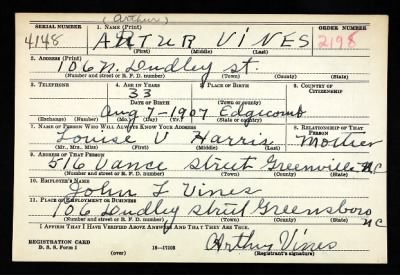 (Arthur)
SERIAL NUMBER 1. NAME (Print) ORDER NUMBER
4148 ARTUR VINES 2198
(First) (Middle) (Last)
2. ADDRESS (Print)
106 N. Dudley St.
(Number and street or R. F. D. number) (Town) (County) (State)
3. TELEPHONE 4. AGE IN YEARS 5. PLACE OF BIRTH 6. COUNTRY OF CITIZENSHIP
33
DATE OF BIRTH (Town or county)
Aug 7-1907 Edgecomb
(Exchange) (Number) (Mo.) (Day) (Yr.) (State or country)
7. NAME OF PERSON WHO WILL ALWAYS KNOW YOUR ADDRESS 8. RELATIONSHIP OF THAT PERSON
Louise V Harris Mother
(Mr., Mrs., Miss) (First) (Middle) (Last)
9. ADDRESS OF THAT PERSON
516 Vance Street Greenville NC
(Number and street or R. F. D. number) (Town) (County) (State)
10. EMPLOYER'S NAME
John L Vines
11. PLACE OF EMPLOYMENT OR BUSINESS
106 Dudley street Greensboro NC
(Number and street or R. F. D. number) (Town) (County) (State)
I AFFIRM THAT I HAVE VERIFIED ABOVE ANSWERS AND THAT THEY ARE TRUE.
REGISTRATION CARD
D. S. S. Form 1 (over) 16-17105 Arthur Vines
(Registrant's signature)